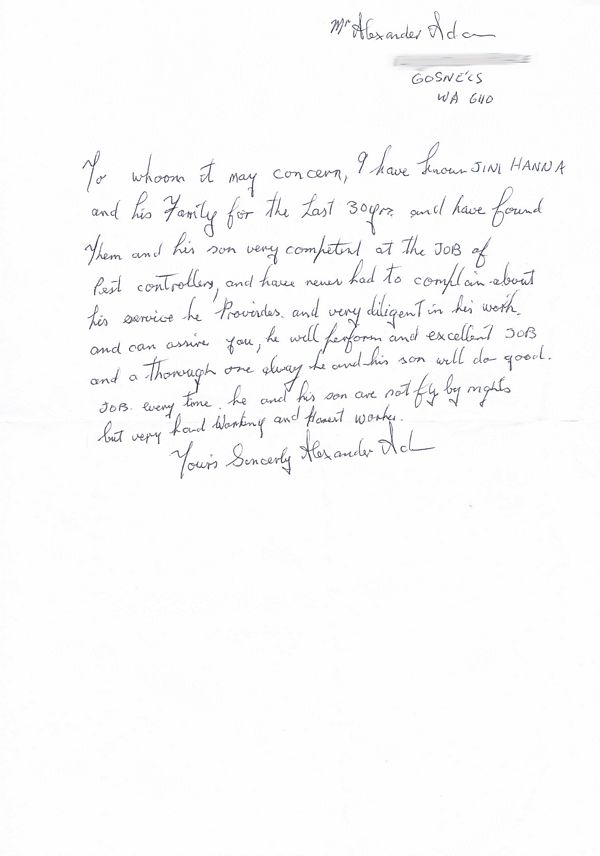 Mr Alexander Adam
GOSNELLS
WA 6110
To whom it may concern, I have known JIM HANNA
and his Family for the Last 30yrs. and have found
them and his son very competent at the JOB of
Pest controllers, and have never had to complain about
his service he Provides. and very diligent in his work.
and can assure you, he will perform and excellent JOB
and a thorough one alway he and his son will do good.
JOB. every time. he and his son are not fly by nights
but very hard Working and Honest worker.
Yours Sincerly Alexander Ad